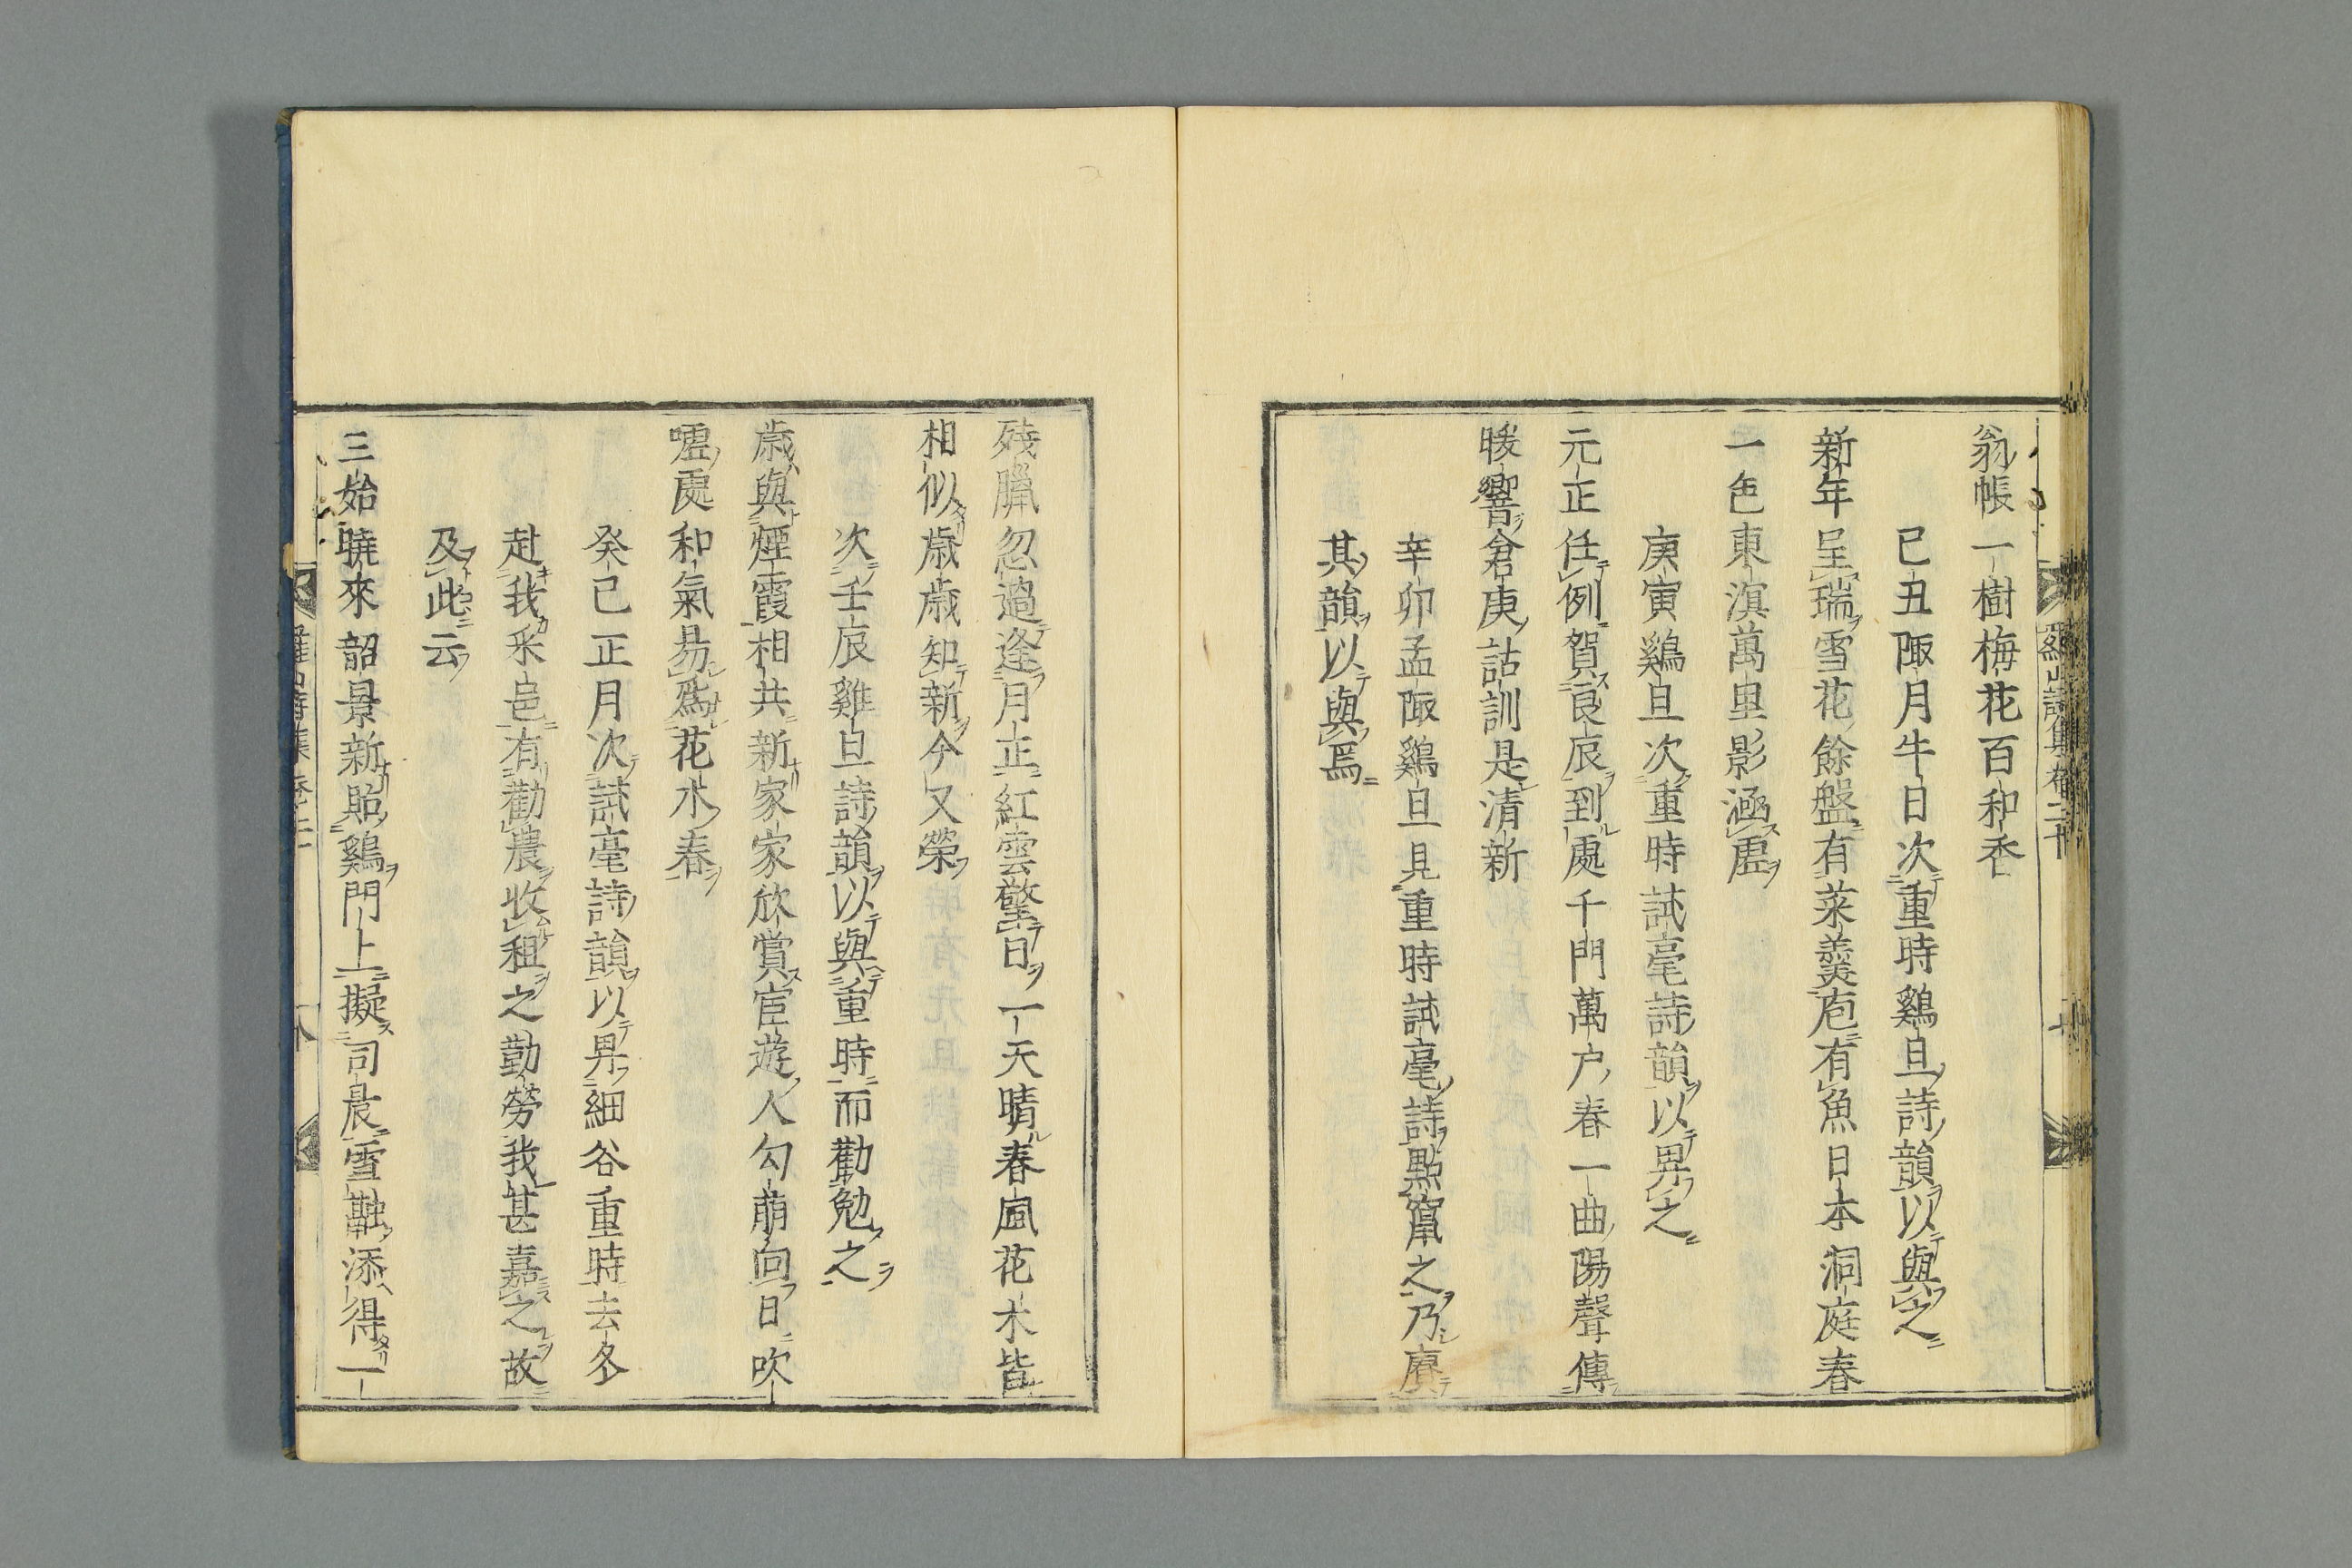 翁帳一樹梅花百和香
己丑陬月牛日次重時鷄旦詩韻以與之
新年呈瑞雪花餘盤有菜羹庖有魚日本洞庭春
一色東溟萬里影涵虛
庚寅鷄旦次重時試毫詩韻以畀之
元正任例賀良辰到處千門萬户春一曲陽聲傳
暖響倉庚詁訓是清新
辛卯孟陬鷄旦見重時試毫詩點竄之乃賡
其韻以與焉
羅山詩集卷二十
殘臘忽過逢月正紅雲擎日一天晴春風花木皆
相似歲歲知新今又榮
次壬辰雞旦詩韻以與重時而勸勉之
歲與煙霞相共新家家欣賞宦遊人勾萠向日吹
噓處和氣易爲花木春
癸巳正月次試毫詩韻以畀細谷重時去冬
赴我采邑有勸農收租之勤勞我甚嘉之故
及此云
三始曉來韶景新貼鷄門上擬司晨雪融添得一